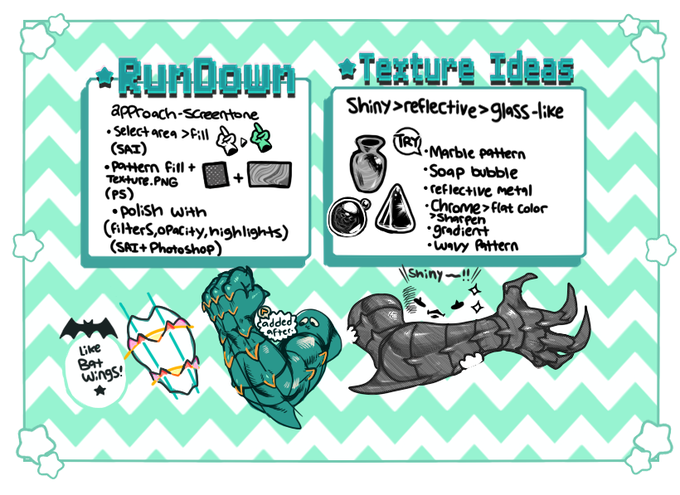 RunDown
approach-screentone
• Select area > fill
(SAI)
• Pattern fill +
Texture.PNG
(PS)
• Polish with
(filters, opacity, highlights)
(SAI + Photoshop)
Texture Ideas
Shiny>reflective>glass-like
TRY
• Marble pattern
• Soap bubble
• reflective metal
• Chrome > flat color
> Sharpen
• gradient
• wavy Pattern
like
Bat
Wings!
added
after
Shiny ~!!